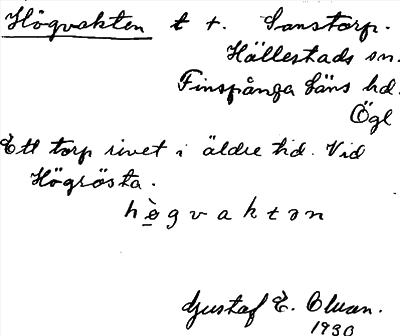 Högvakten t t. Sanstorp.
Hällestads sn.
Finspånga läns hd.
Ögl
Ett torp rivet i äldre tid. Vid
Högrösta.
hø̀gvaktən
Gustaf E. Olsson.
1930